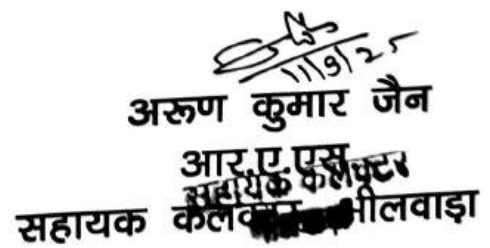 11/9/25
अरूण कुमार जैन
आर.ए.एस
सहायक कलक्टर
सहायक कलक्टर भीलवाड़ा